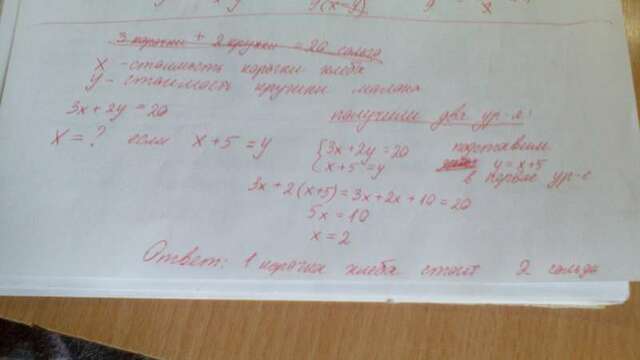 y(x-y)
x
3 корочки + 2 кружки = 20 сольдо
x - стоимость корочки хлеба
y - стоимость кружки молока
3x + 2y = 20
получили два ур-я:
x = ? если x + 5 = y
{ 3x + 2y = 20
x + 5 = y
подставим
y = x+5
в первое ур-е
3x + 2(x+5) = 3x + 2x + 10 = 20
5x = 10
x = 2
Ответ: 1 корочка хлеба стоит 2 сольдо